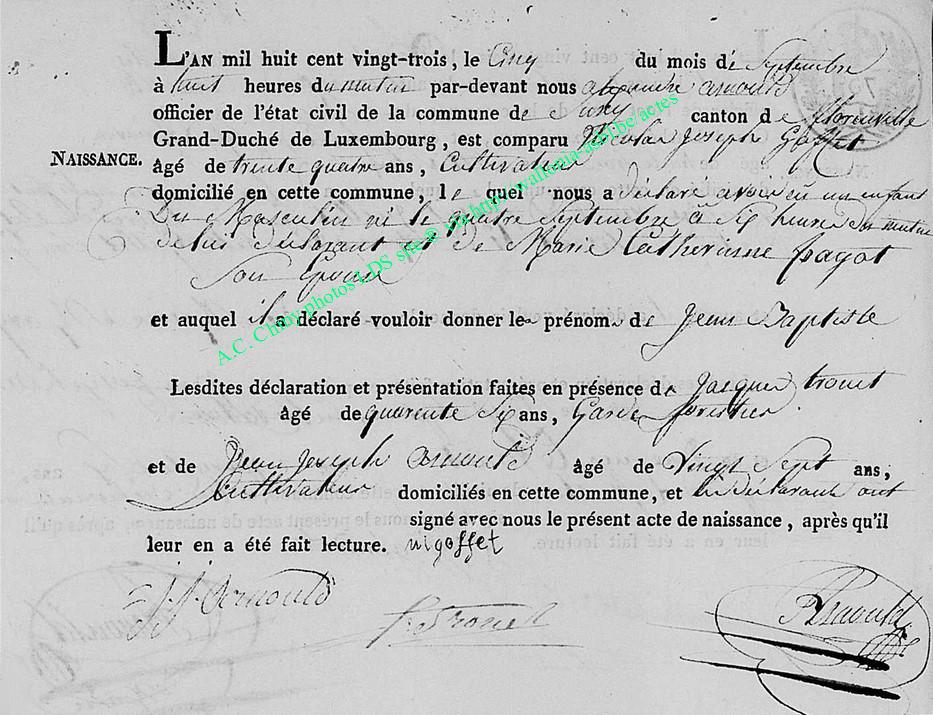 L'AN mil huit cent vingt-trois, le Cinq du mois de Septembre
à huit heures du matin par-devant nous arnould
officier de l'état civil de la commune de Suxy canton de florenville
Grand-Duché de Luxembourg, est comparu Nicolas Joseph Goffet
NAISSANCE.
Agé de trente quatre ans, Cultivateur
domicilié en cette commune, le quel nous a déclaré avoir eu un enfant
Du Masculin né le quatre Septembre à Six heures du matin
de lui déclarant et de Marie Catherinne Jagot
Son Epouse
et auquel il a déclaré vouloir donner les prénoms de Jean Baptiste
Lesdites déclaration et présentation faites en présence de Jacques trouet
Agé de quarente Six ans, Garde forestier
et de Jean Joseph arnould Agé de Vingt Sept ans,
Cultivateur domiciliés en cette commune, et le déclarant ont
signé avec nous le présent acte de naissance, après qu'il
leur en a été fait lecture. nigoffet
J J Arnould
J. Trouet
Arnould
A.C. Chiny photos LDS site@ sur http://wallonia-asbl.be/actes